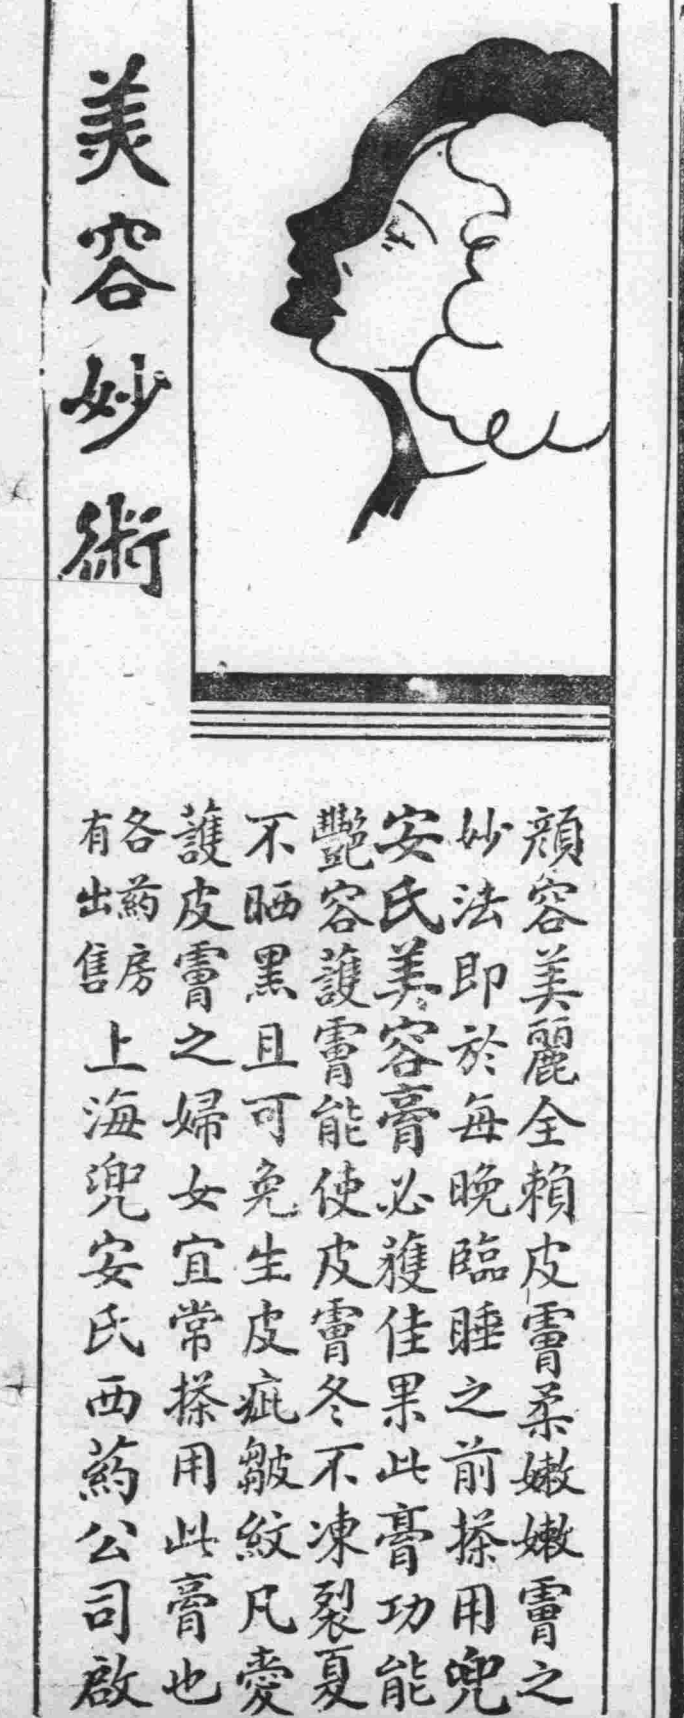 美容妙術
顔容美麗全賴皮膚柔嫩嫩膚之
妙法即於每晚臨睡之前搽用兜
安氏美容膏必獲佳果此膏功能
艷容護膚能使皮膚冬不凍裂夏
不晒黑且可免生皮疵皺紋凡愛
護皮膚之婦女宜常搽用此膏也
各药房
有出售
上海兜安氏西药公司啟